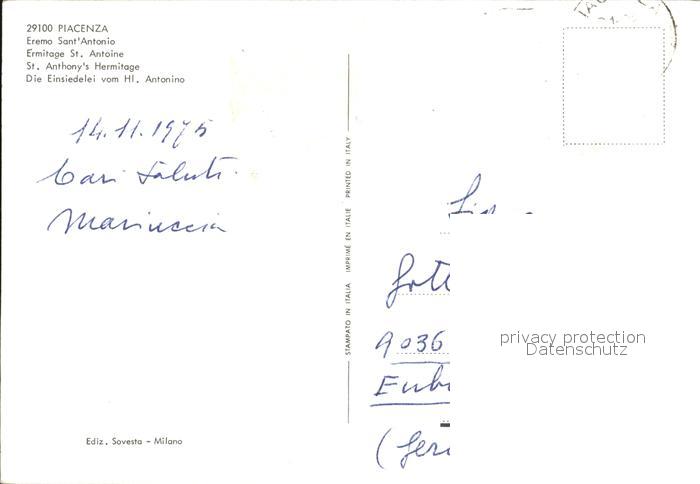 29100 PIACENZA
Eremo Sant'Antonio
Ermitage St. Antoine
St. Anthony's Hermitage
Die Einsiedelei vom Hl. Antonino
14.11.1975
Cari Saluti
Mariuccia
Ediz. Sovesta - Milano
STAMPATO IN ITALIA IMPRIMÉ EN ITALIE PRINTED IN ITALY
9036
privacy protection
Datenschutz